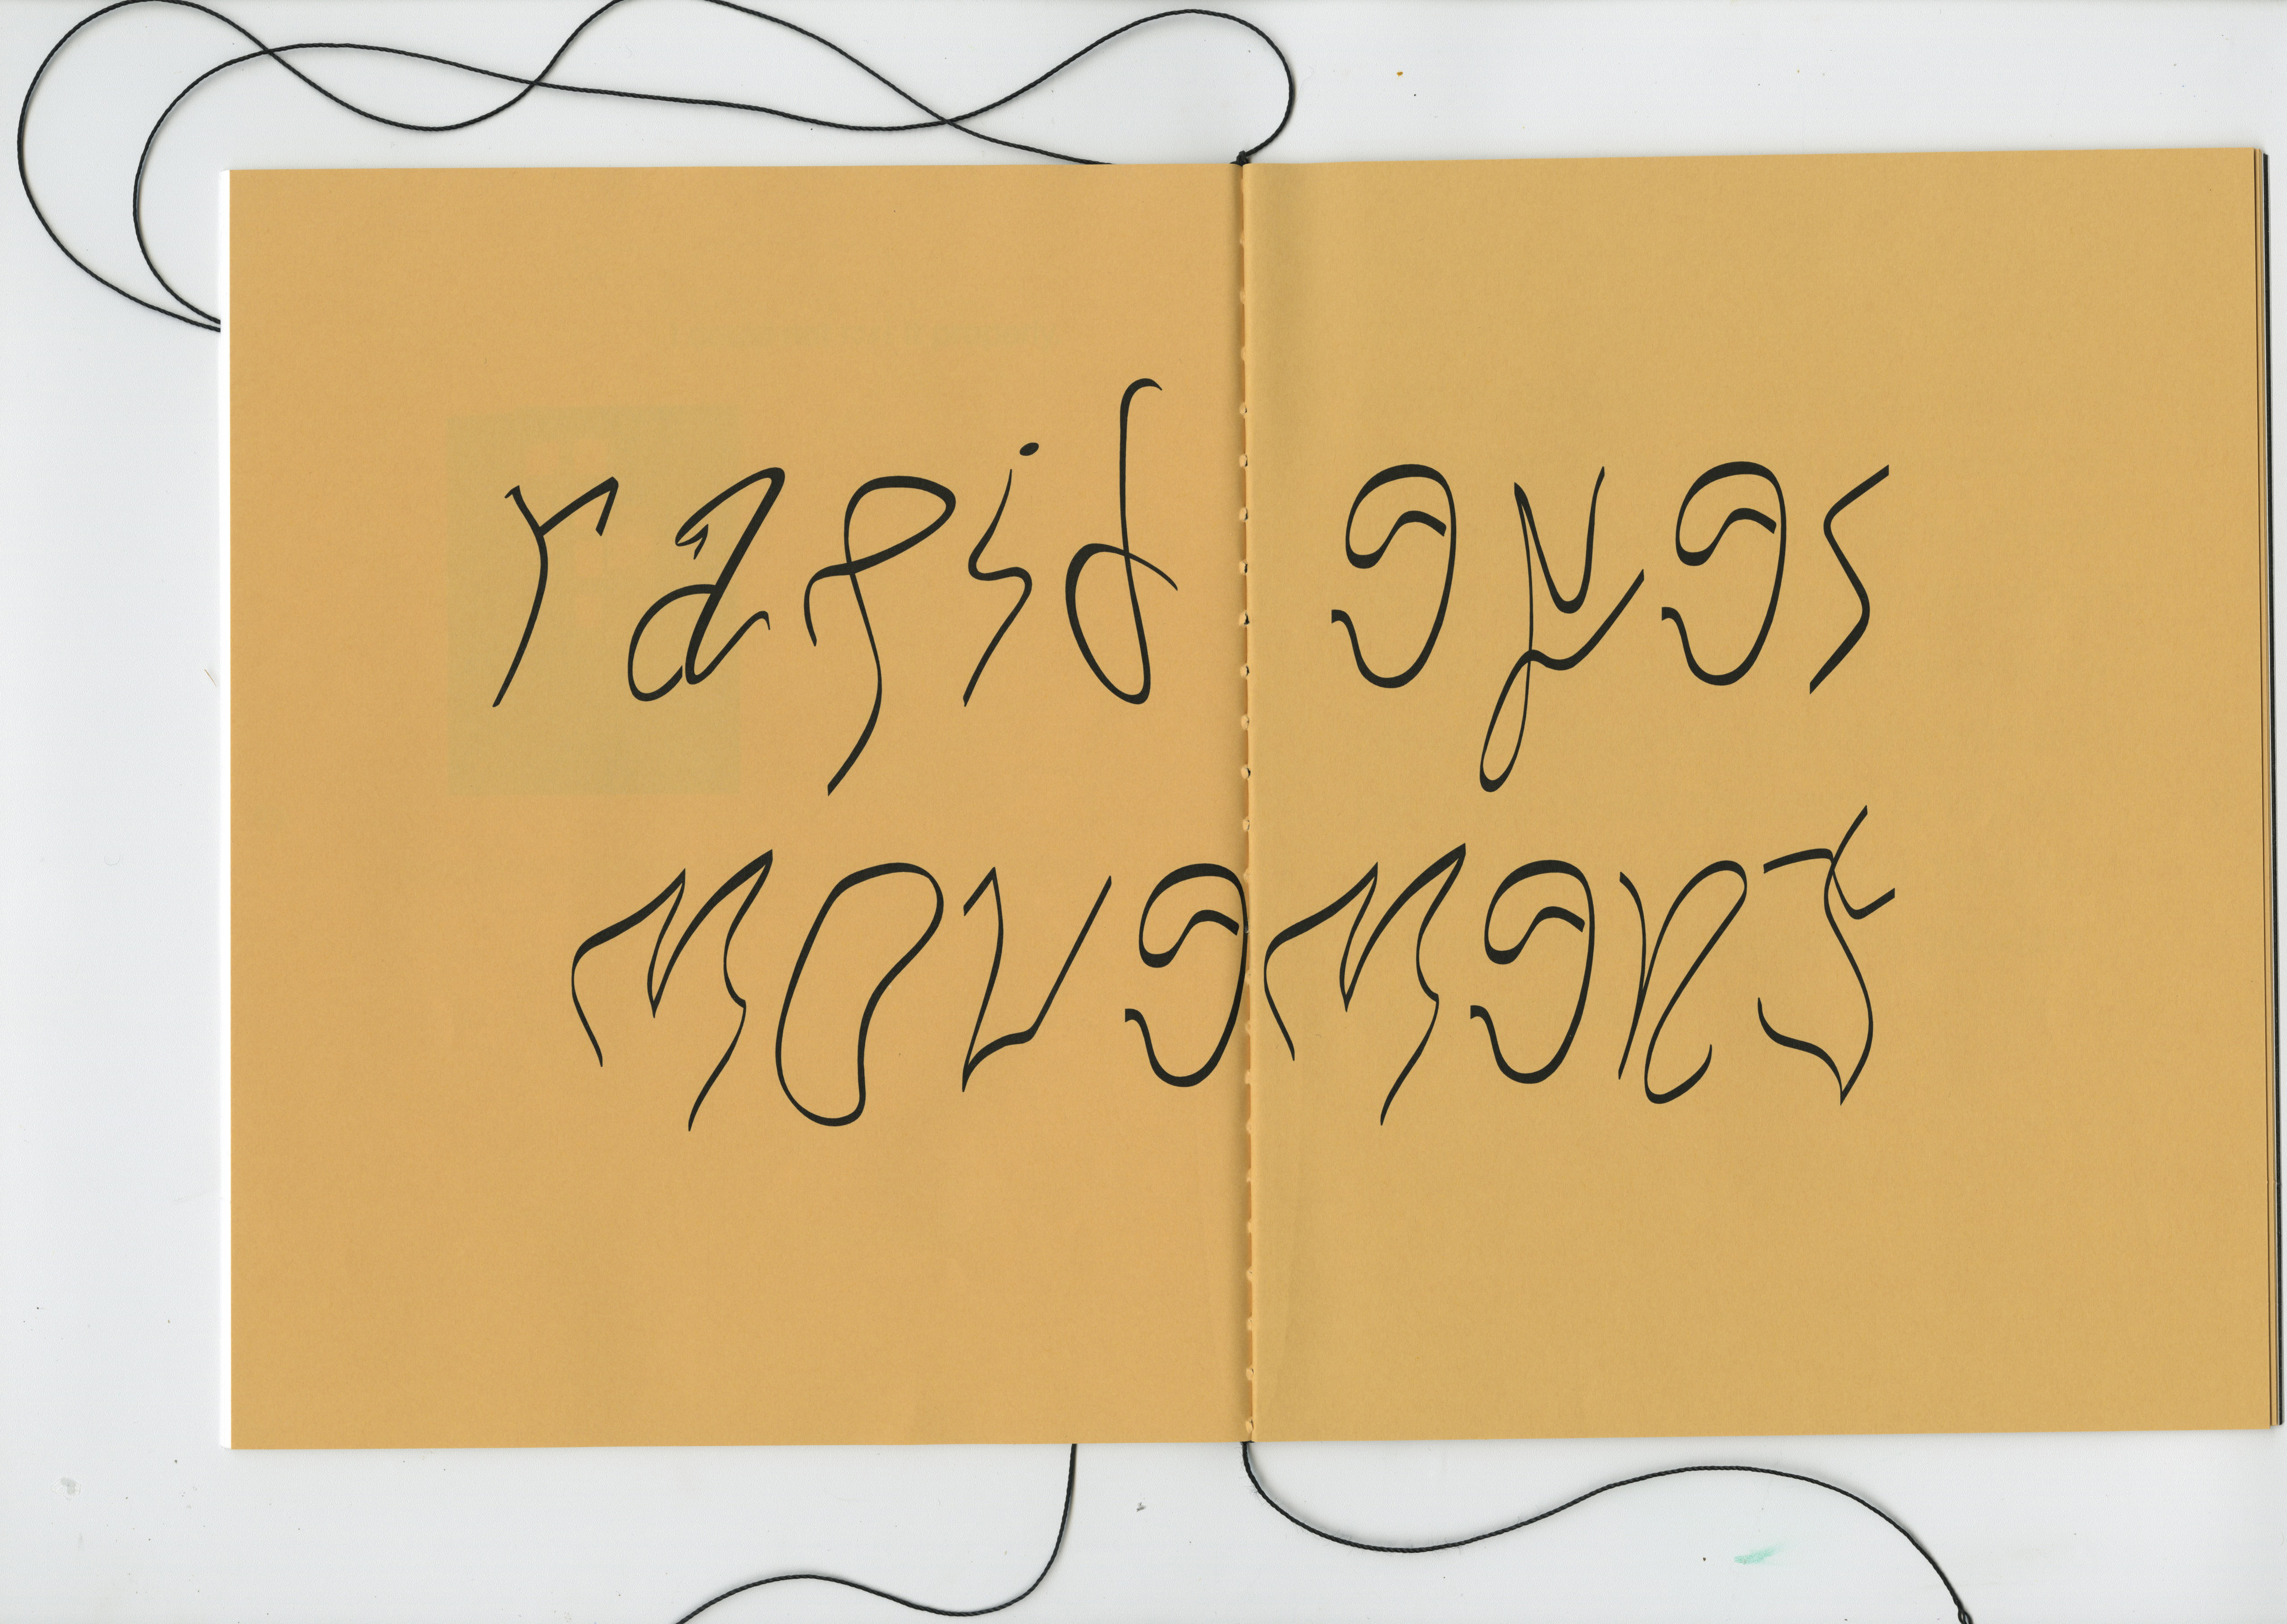 rapid eyes
movement